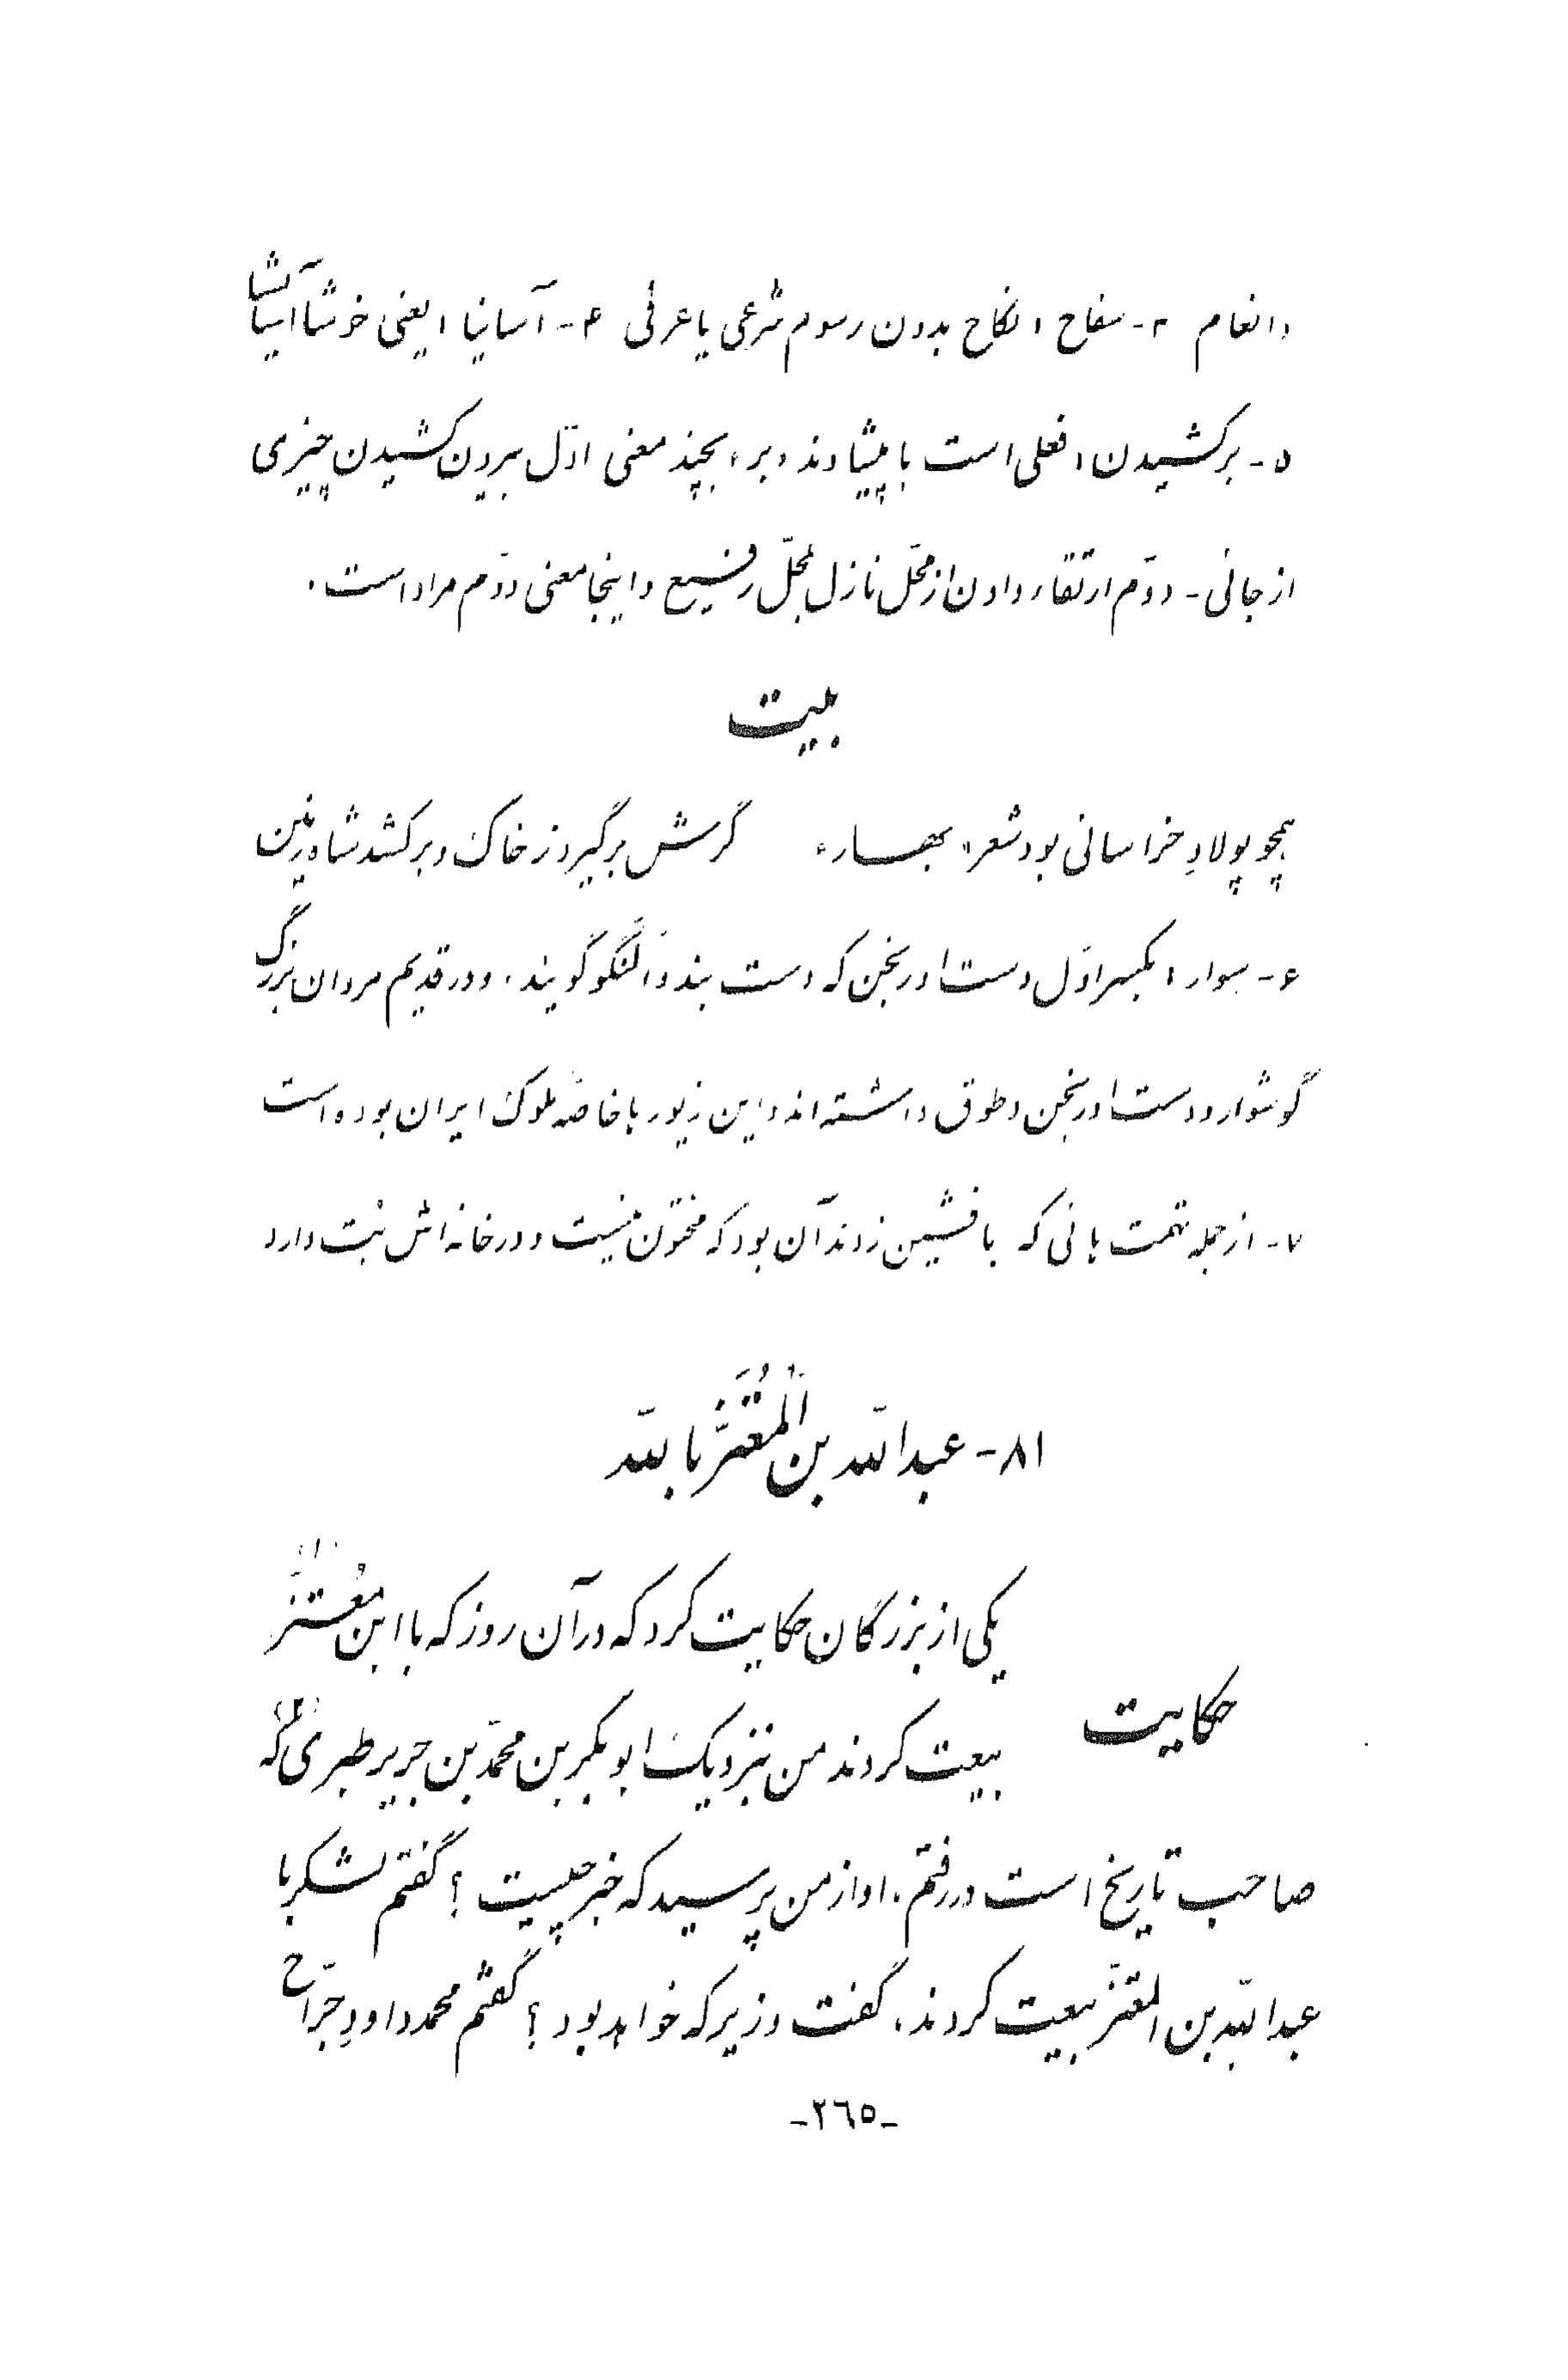 و انعام ۳- سفاح : نکاح بدون رسوم شرعی یا عرفی ۴- آسانیا : یعنی خوشا آسیا
۵- برکشیدن : فعلی است با پیشاوند «بر» بچند معنی اوّل بیرون کشیدن چیزی
از جائی - دوّم ارتقاء دادن از محّل نازل بمحّل رفیع و اینجا معنی دوّم مراد است .
بیت
همچو پولادِ خراسانی بود شعر «بهار» گرش برگیرد ز خاک و برکشد شاه زمین
۶- سوار : بکسر اوّل دست اورنجن که دست بند و اَلَنگو گویند ، و در قدیم مردان بزرگ
گوشوار و دست اورنجن و طوق داشته اند و این زیور با خاصّه ملوک ایران بوده است
۷- از جمله تهمت هائی که با فشین زدند آن بود که مختون نیست و در خانه اش بت دارد
۸۱- عبدالله بن المُعْتَزّ بالله
یکی از بزرگان حکایت کرد که در آن روز که با ابن مُعْتز (۱)
حکایت
بیعت کردند من نزدیک ابوبکر بن محمّد بن جریر طبری (۲) که
صاحب تاریخ است در رفتم ، او از من پرسید که خبر چیست ؟ گفتم لشکر با
عبدالله بن المعتز بیعت کردند ، گفت وزیر که خواهد بود ؟ گفتم محمد داودِ جرّاح
-۲٦۵-